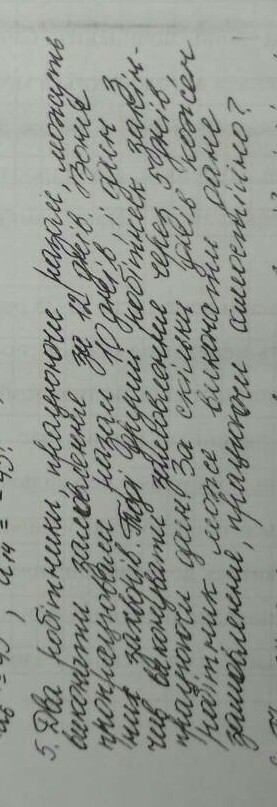 5. Два робітники працюючи разом, можуть
виконати замовлення за 12 днів. Вони
пропрацювали разом 10 днів і один з
них захворів. Тоді другий робітник закін-
чив виконувати замовлення через 5 днів
працюючи один. За скільки днів кожен
робітник може виконати дане
замовлення, працюючи самостійно?